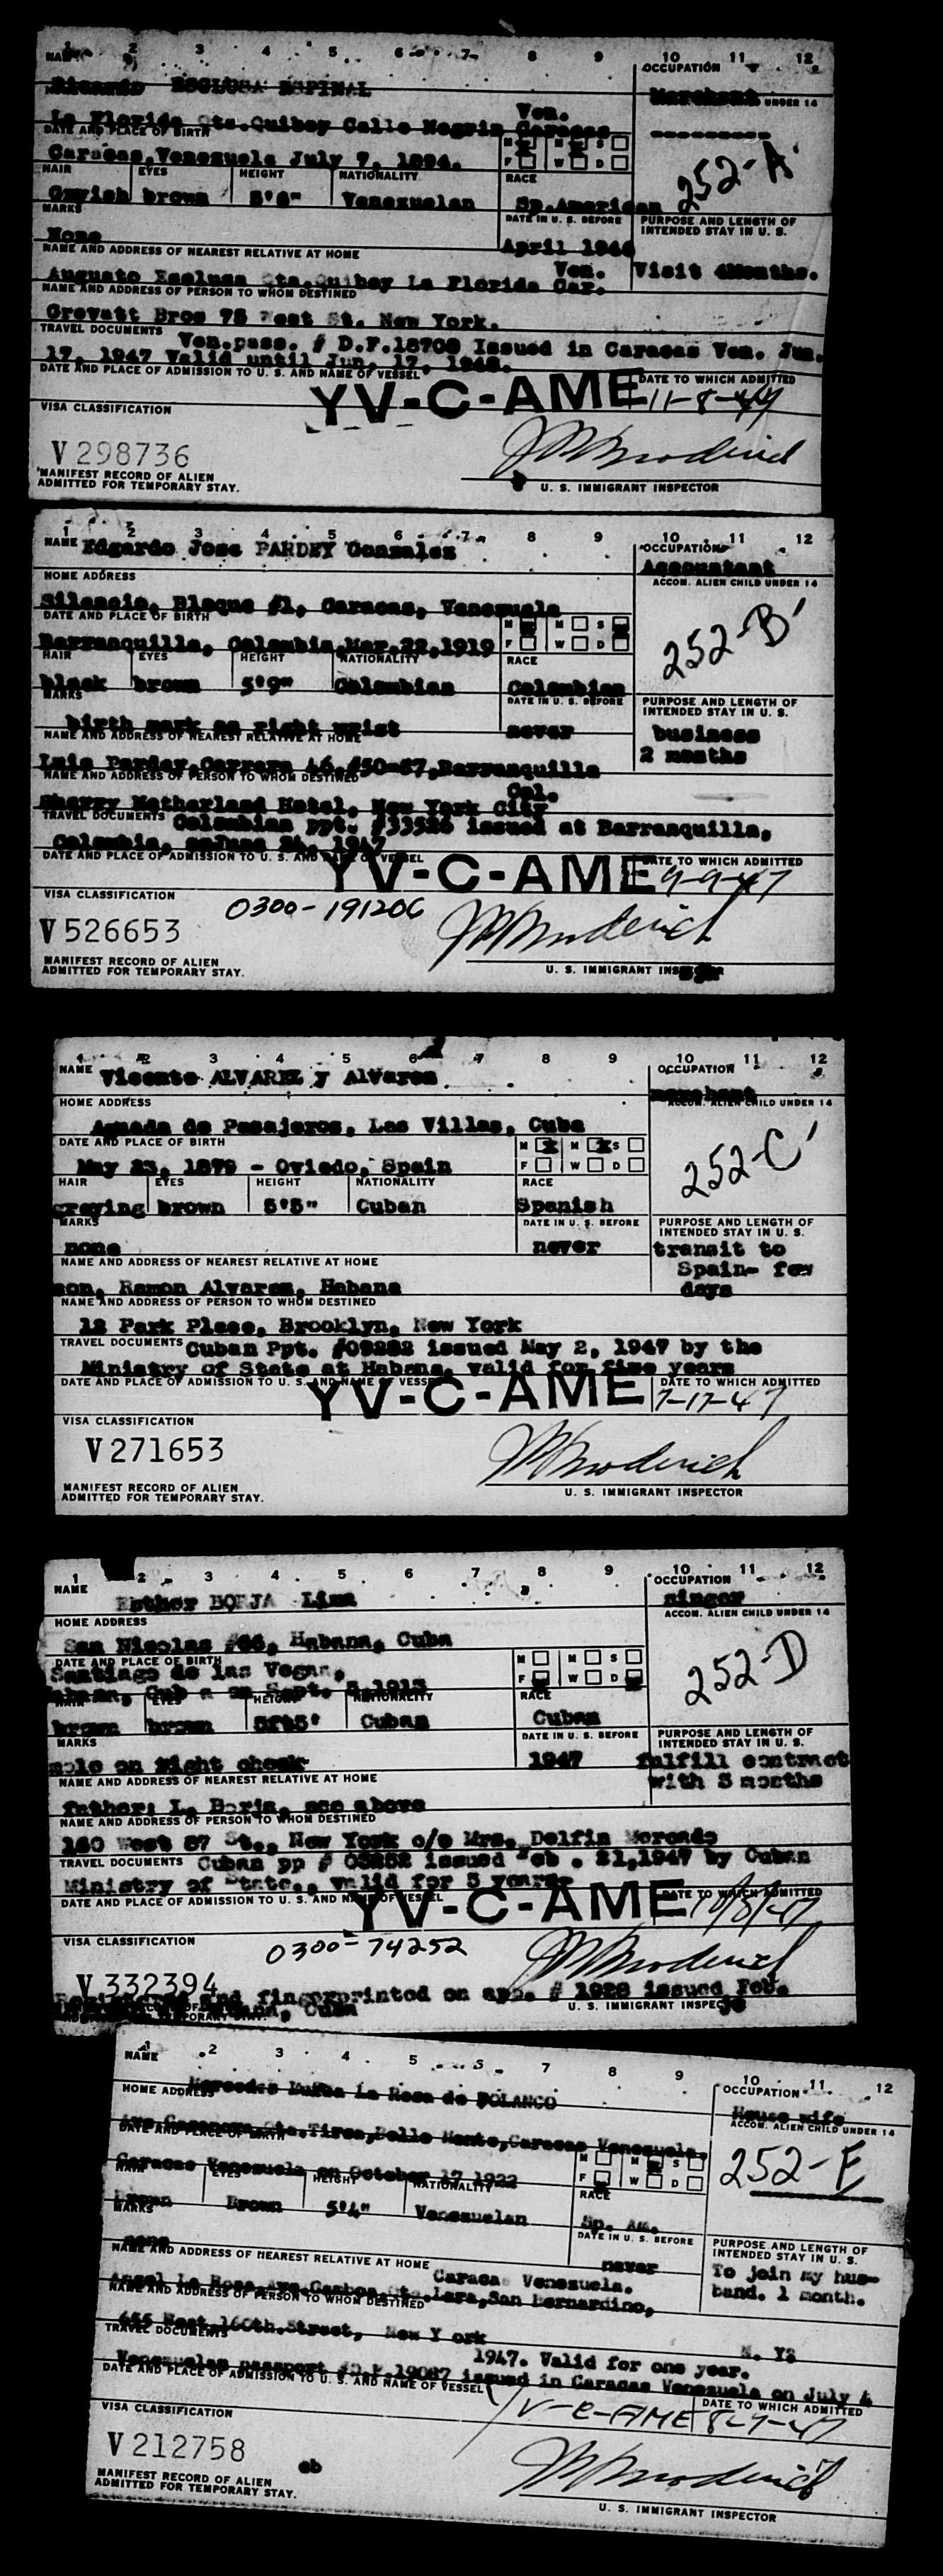 1 2 3 4 5 6 7 8 9 10 11 12
NAME OCCUPATION
Ricardo ESCLUSA ESPINAL Merchant
UNDER 14
Ven.
La Florida Qta.Quibey Calle Negrin Caracas
DATE AND PLACE OF BIRTH
Caracas,Venezuela July 7, 1894. M M S
F W D
252-A
HAIR EYES HEIGHT NATIONALITY RACE
Grayish brown Venezuelan Sp.American
MARKS DATE IN U. S. BEFORE PURPOSE AND LENGTH OF
INTENDED STAY IN U. S.
None April 1946
NAME AND ADDRESS OF NEAREST RELATIVE AT HOME
Ven. Visit 4Months.
Augusto Esclusa Qta.Quibey La Florida Car.
NAME AND ADDRESS OF PERSON TO WHOM DESTINED
Bros 75 West St. New York.
TRAVEL DOCUMENTS
Ven.pass. # D.F.18708 Issued in Caracas Ven. Jun.
17, 1947 Valid until Jun. 17, 1948.
DATE AND PLACE OF ADMISSION TO U. S. AND NAME OF VESSEL DATE TO WHICH ADMITTED
YV-C-AME 11-8-47
VISA CLASSIFICATION
V 298736
MANIFEST RECORD OF ALIEN
ADMITTED FOR TEMPORARY STAY.
U. S. IMMIGRANT INSPECTOR
1 2 3 4 5 6 7 8 9 10 11 12
NAME Edgardo Jose PARDEY Gonzalez OCCUPATION
Accountant
HOME ADDRESS ACCOM. ALIEN CHILD UNDER 14
Silencio, Bloque #1, Caracas, Venezuela
DATE AND PLACE OF BIRTH M M S
Barranquilla, Colombia,Mar.22,1919 F W D
252-B
HAIR EYES HEIGHT NATIONALITY RACE
black brown 5'9" Colombian Colombian
MARKS DATE IN U. S. BEFORE PURPOSE AND LENGTH OF
INTENDED STAY IN U. S.
birth mark on right wrist never business
NAME AND ADDRESS OF NEAREST RELATIVE AT HOME 2 months
Luis Pardey,Carrera 46,#50-67,Barranquilla
NAME AND ADDRESS OF PERSON TO WHOM DESTINED
Col.
Sherry Netherland Hotel, New York City
TRAVEL DOCUMENTS Colombian ppt. #33526 issued at Barranquilla,
Colombia, onJune 24, 1947
DATE AND PLACE OF ADMISSION TO U. S. AND NAME OF VESSEL DATE TO WHICH ADMITTED
YV-C-AME 9-9-47
VISA CLASSIFICATION
0300-191206
V 526653
MANIFEST RECORD OF ALIEN
ADMITTED FOR TEMPORARY STAY.
U. S. IMMIGRANT
1 2 3 4 5 6 7 8 9 10 11 12
NAME Vicente ALVAREZ y Alvarez OCCUPATION
merchant
HOME ADDRESS ACCOM. ALIEN CHILD UNDER 14
Aguada de Pasajeros, Las Villas, Cuba
DATE AND PLACE OF BIRTH M X M X S
May 23, 1879 - Oviedo, Spain F W D
252-C
HAIR EYES HEIGHT NATIONALITY RACE
graying brown 5'5" Cuban Spanish
MARKS DATE IN U. S. BEFORE PURPOSE AND LENGTH OF
INTENDED STAY IN U. S.
none never transit to
NAME AND ADDRESS OF NEAREST RELATIVE AT HOME Spain- few
son, Ramon Alvarez, Habana days
NAME AND ADDRESS OF PERSON TO WHOM DESTINED
12 Park Place, Brooklyn, New York
TRAVEL DOCUMENTS Cuban Ppt. #09282 issued May 2, 1947 by the
Ministry of State at Habana, valid for five years
DATE AND PLACE OF ADMISSION TO U. S. AND NAME OF VESSEL DATE TO WHICH ADMITTED
YV-C-AME 7-17-47
VISA CLASSIFICATION
V 271653
MANIFEST RECORD OF ALIEN
ADMITTED FOR TEMPORARY STAY.
U. S. IMMIGRANT INSPECTOR
1 2 3 4 5 6 7 8 9 10 11 12
NAME OCCUPATION
Esther BORJA Lima singer
HOME ADDRESS ACCOM. ALIEN CHILD UNDER 14
San Nicolas #66, Habana, Cuba
DATE AND PLACE OF BIRTH M M S
Santiago de las Vegas, F W D
Habana, Cub a on Sept. 5,1913
252-D
HAIR EYES HEIGHT NATIONALITY RACE
brown brown 5ft5' Cuban Cuban
MARKS DATE IN U. S. BEFORE PURPOSE AND LENGTH OF
INTENDED STAY IN U. S.
mole on right cheek 1947 fulfill contract
NAME AND ADDRESS OF NEAREST RELATIVE AT HOME with 3 months
father: L. Borja, see above
NAME AND ADDRESS OF PERSON TO WHOM DESTINED
160 West 87 St., New York c/o Mrs. Delfin Mercado
TRAVEL DOCUMENTS Cuban pp # 03252 issued Feb . 21,1947 by Cuban
Ministry of State., valid for 5 years
DATE AND PLACE OF ADMISSION TO U. S. AND NAME OF VESSEL DATE TO WHICH ADMITTED
YV-C-AME 10/8/47
VISA CLASSIFICATION
0300-74252
V 332394
Registered and fingerprinted on app. # 1928 issued Feb.
Cuba
U. S. IMMIGRANT
1 2 3 4 5 6 7 8 9 10 11 12
NAME OCCUPATION
Mercedes La Rosa de POLANCO House wife
HOME ADDRESS ACCOM. ALIEN CHILD UNDER 14
Ave.Casanova Qta.Tirsa,Bello Monte,Caracas Venezuela.
DATE AND PLACE OF BIRTH M M S
Caracas Venezuela on October 17 1922 F W D
252-E
HAIR EYES HEIGHT NATIONALITY RACE
Brown Brown 5'4" Venezuelan Sp. Am.
MARKS DATE IN U. S. BEFORE PURPOSE AND LENGTH OF
INTENDED STAY IN U. S.
none never
NAME AND ADDRESS OF NEAREST RELATIVE AT HOME To join my hus-
Caracas Venezuela. band. 1 month.
Angel La Rosa,Ave.Gamboa,Qta.Lara,San Bernardino,
NAME AND ADDRESS OF PERSON TO WHOM DESTINED
656 West,160th.Street, New Y ork N. Y.
TRAVEL DOCUMENTS
1947. Valid for one year.
Venezuelan passport #D.F.19087 issued in Caracas Venezuela on July 4
DATE AND PLACE OF ADMISSION TO U. S. AND NAME OF VESSEL DATE TO WHICH ADMITTED
YV-C-AME 8-9-47
VISA CLASSIFICATION
V 212758
eb
MANIFEST RECORD OF ALIEN
ADMITTED FOR TEMPORARY STAY.
U. S. IMMIGRANT INSPECTOR